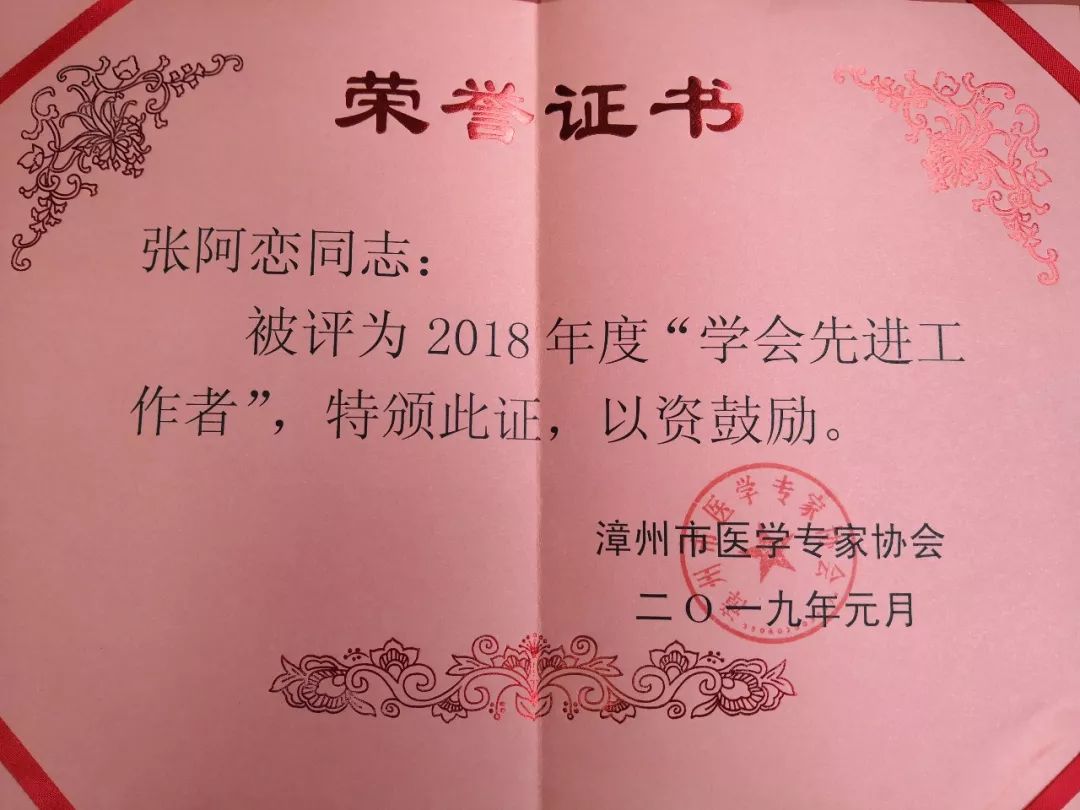 荣誉证书
张阿恋同志：
被评为 2018 年度“学会先进工
作者”，特颁此证，以资鼓励。
漳州市医学专家协会
二〇一九年元月
漳州市医学专家协会